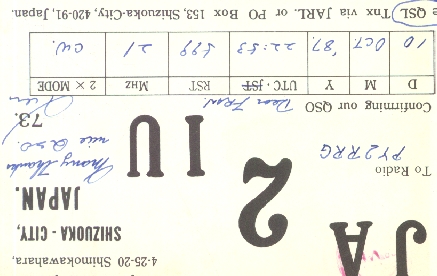 4-25-20 Shimokawahara,
SHIZUOKA - CITY,
JAPAN.
JA2IUU
To Radio PY2RRG
Many Thanks
nice QSO.
73.
Confirming our QSO Dear Fran
D M Y UTC · JST RST MHz 2 × MODE
10 OCT '87 22:53 599 21 CW.
QSL Tnx via JARL. or PO Box 153, Shizuoka-City, 420-91, Japan.